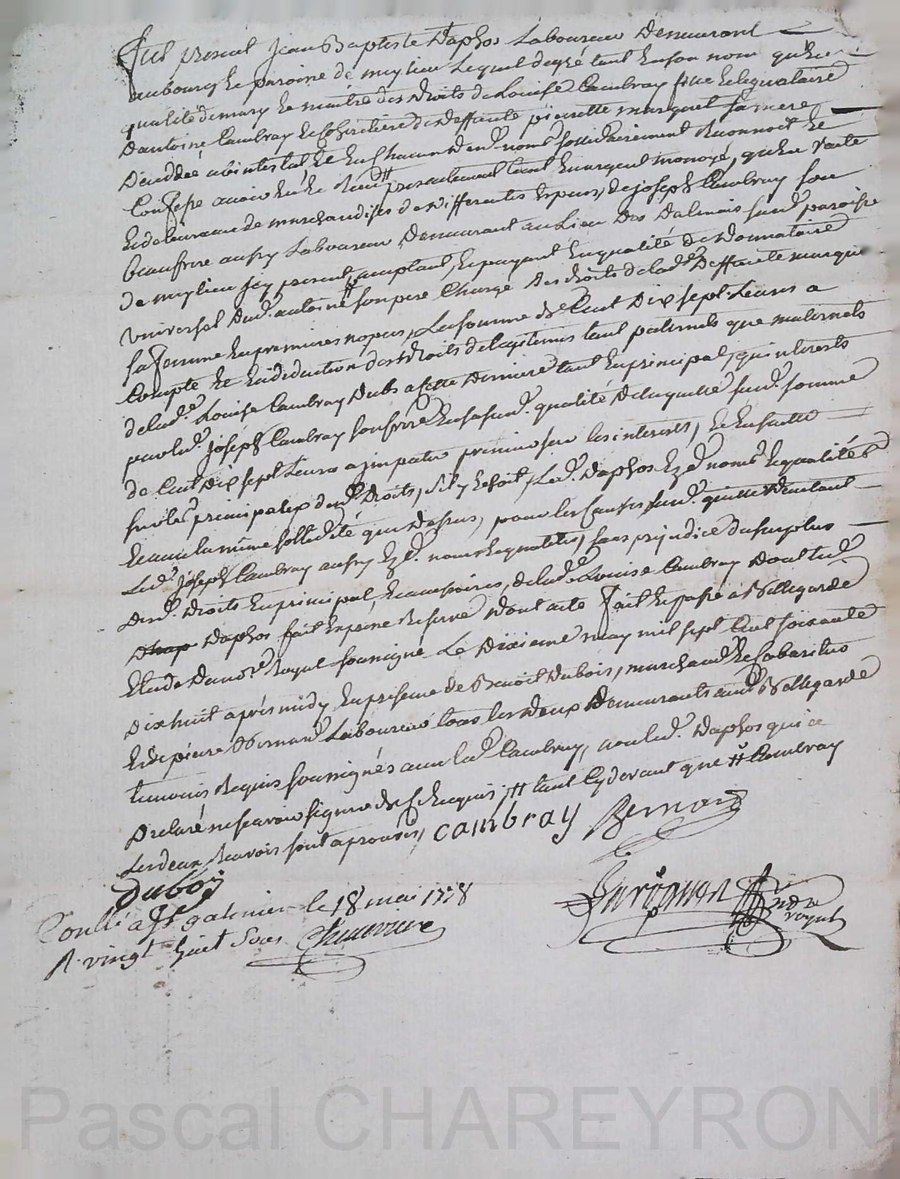 fut présent Jean Baptiste Daphos Laboureur Demeurant
au bourg et paroisse de mylieu Lequel degré tant en son nom qu'en
qualité de mary et maitre des droits de Louise Cambray fille et legataire
D'antoine Cambray et cohéritiere de deffunte pierrette marquet sa mere
Decedée abintestat et en chacun Desd. noms sollidairement Reconnoit et
Confesse avoir eu et Receu # presentement tant en argent monoyé, qu'en vente
et delivrance de marchandises de differentes espèces, de joseph Cambray son
beaufrere aussy Laboureur Demeurant au Lieu Des Dalmais susd. paroisse
de mylieu jcy present, acceptant, et payant en qualité de Donnataire
Universel Dud. antoine son pere Chargé Des droits de lad. Deffunte marquet
sa femme en premieres nopces, La somme de Cent Dix sept Livres a
Compte et en deduction des droits de legitimes tant paternels que maternels
de lad. Louise Cambray Dubs a cette Derniere tant en principal, qu'interests
par led. joseph Cambray son frere en sa susd. qualité De laquelle susd. somme
de Cent Dix sept Livres a jmputer primo sur les interets, et en suitte
sur les principaux desd. Droits, s'il y échoit, Led. Daphos ezd. noms et qualités
et avec la même sollidité que Dessus, pour les Causes susd. quitte d'autant
Led. joseph Cambray aussy ezd. noms et qualités, sans prejudice du surplus
Desd. Droits en principal et accessoires, de lad. Louise Cambray Dont led.
Daphos fait expresse Reserve Dont acte fait et passé à Bellegarde
Etude Du no.re Royal soussigné Le Dixieme may mil sept Cent soixante
Dix huit après midy En presence de Benoit Dubois, marchand et Cabaretier
et de pierre Bernard Laboureur tous les deux Demeurants aud. Bellegarde
temoins Requis soussignés avec led. Cambray, non led. Daphos qui a
Declaré ne scavoir signer de ce Enquis, # tant cy devant que # Cambray
Les deux Renvois sont aprouvés, cambray Bernard
Duboy
Conllé a St galmier le 18 mai 1778
R. vingt huit sous
no.re royal
Pascal CHAREYRON